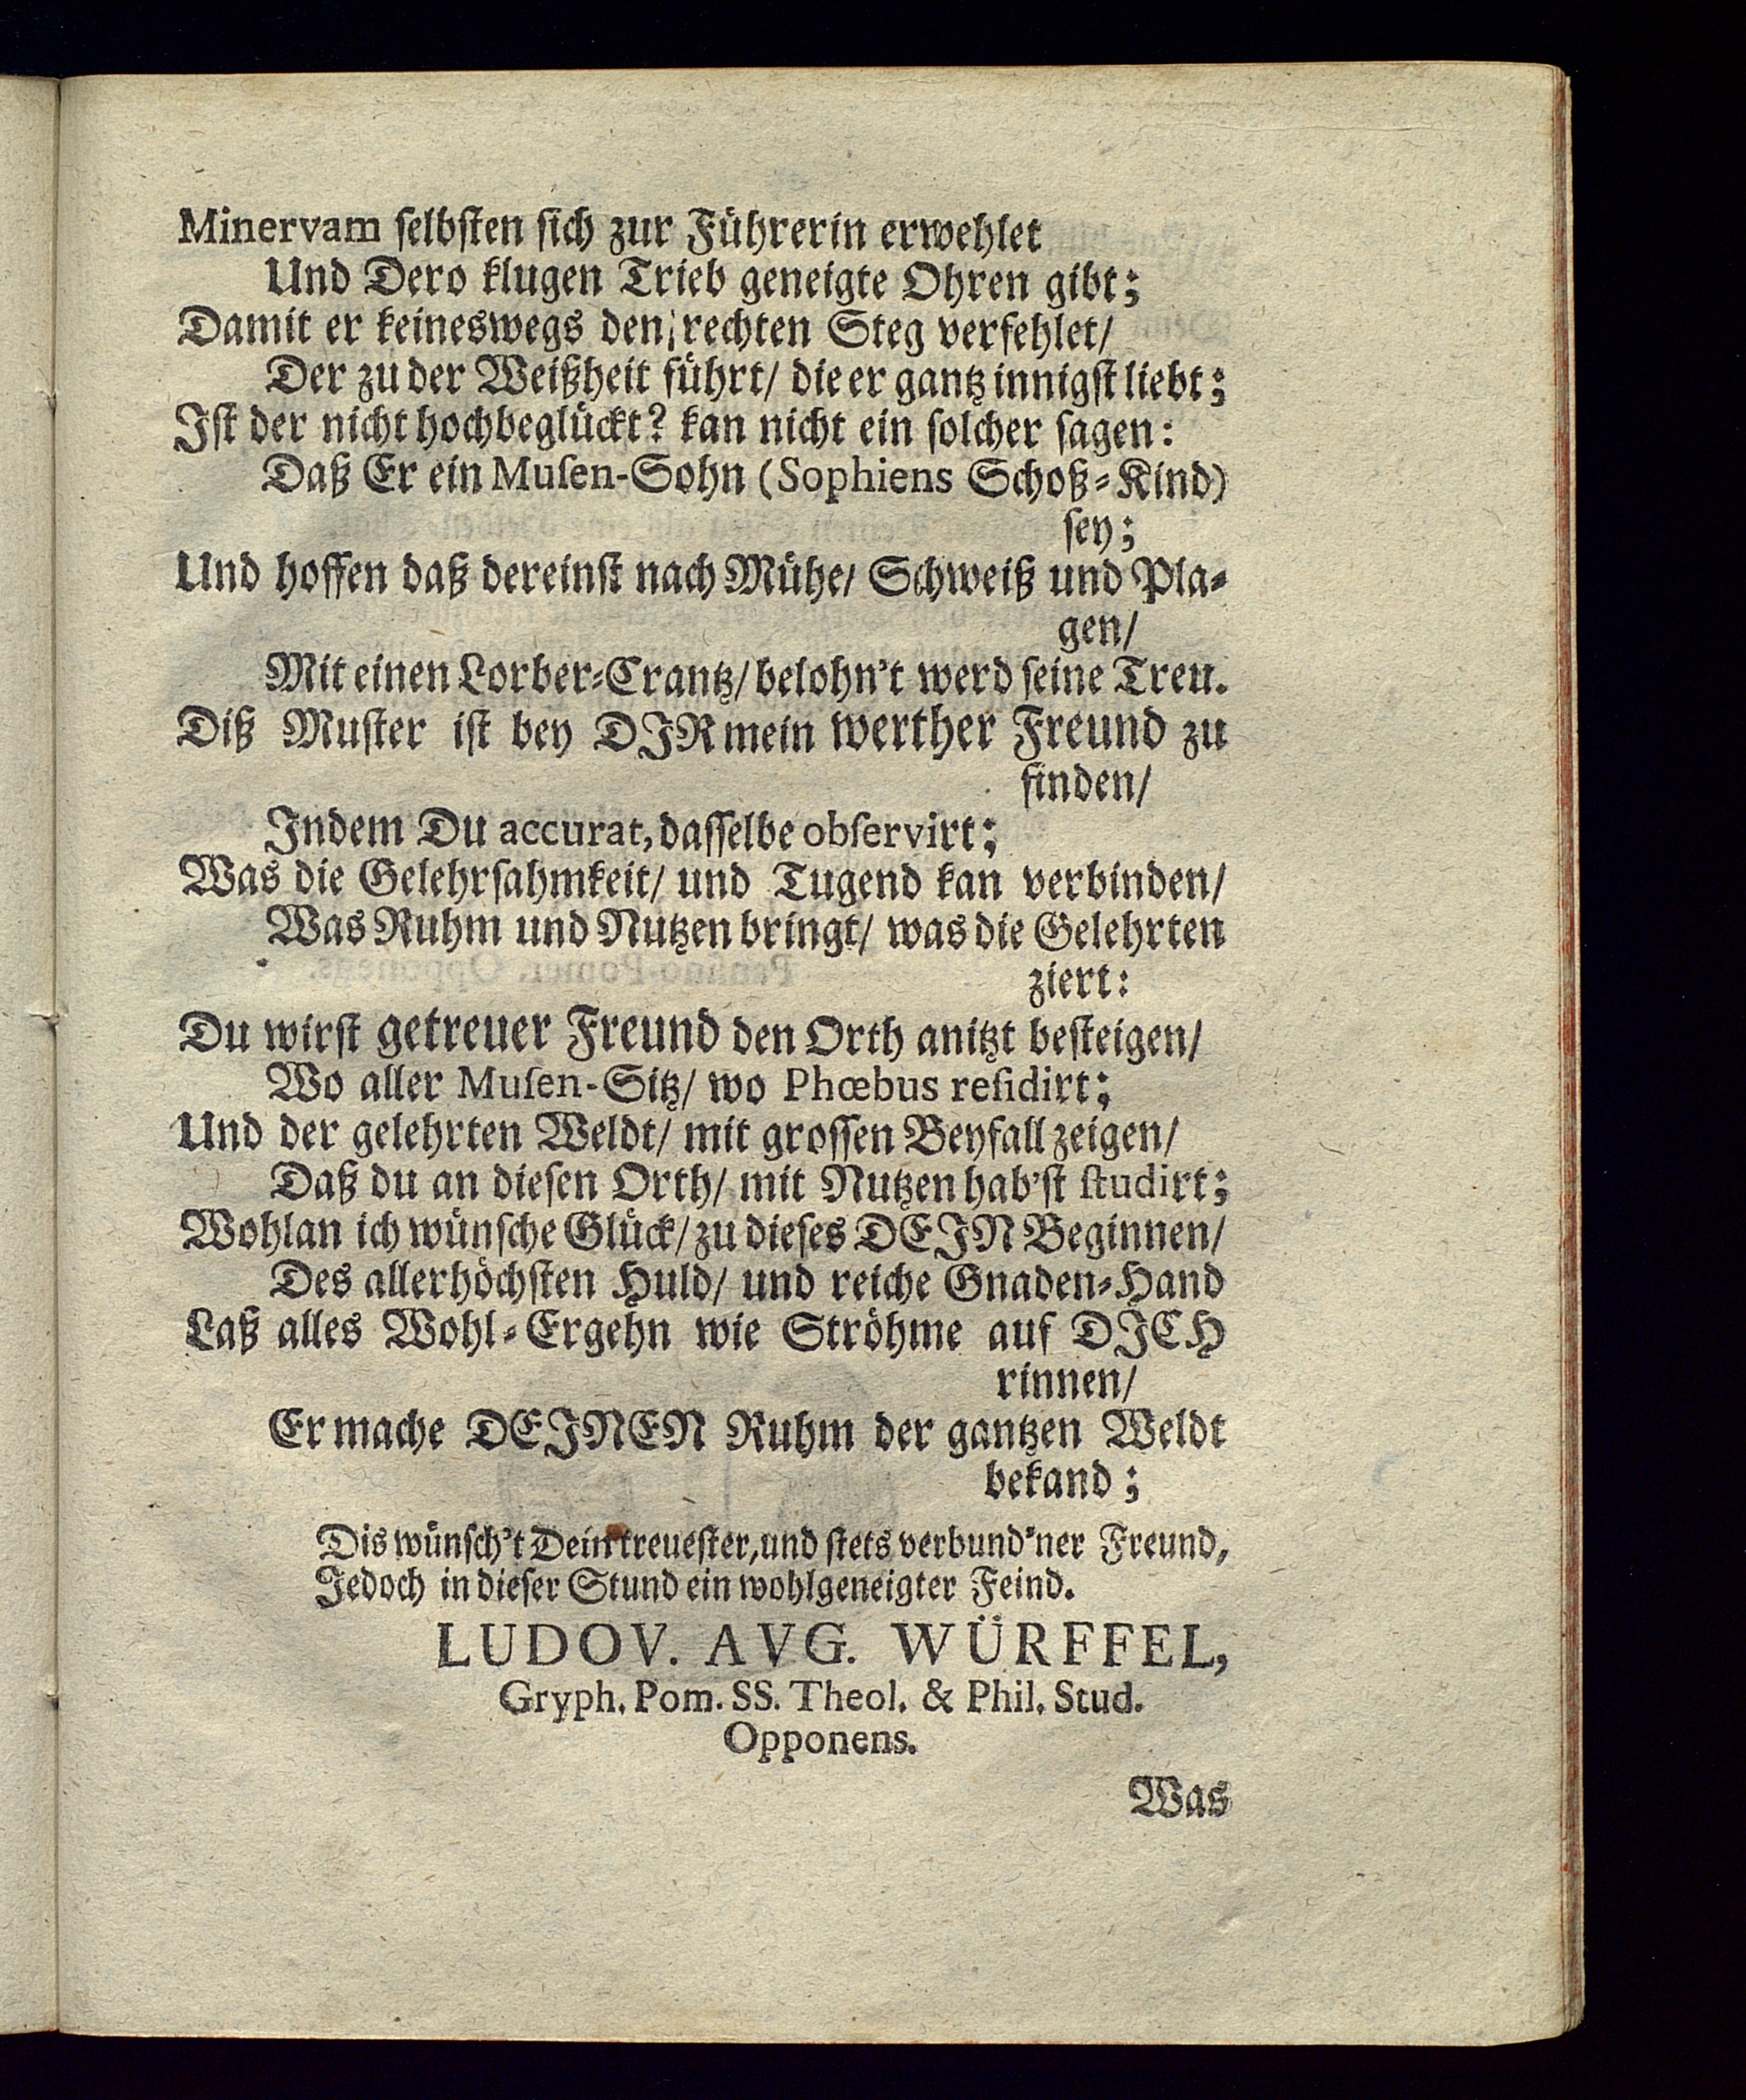 Minervam ſelbſten ſich zur Führerin erwehlet
Und Dero klugen Trieb geneigte Ohren gibt;
Damit er keineswegs den rechten Steg verfehlet/
Der zu der Weißheit führt/ die er gantz innigſt liebt;
Iſt der nicht hochbeglückt? kan nicht ein ſolcher ſagen:
Daß Er ein Muſen-Sohn (Sophiens Schoß-Kind)
ſey;
Und hoffen daß dereinſt nach Mühe/ Schweiß und Pla-
gen/
Mit einen Lorber-Crantz/ belohn't werd ſeine Treu.
Diß Muſter iſt bey DIR mein werther Freund zu
finden/
Indem Du accurat, daſſelbe obſervirt;
Was die Gelehrſahmkeit/ und Tugend kan verbinden/
Was Ruhm und Nutzen bringt/ was die Gelehrten
ziert:
Du wirſt getreuer Freund den Orth anitzt beſteigen/
Wo aller Muſen-Sitz/ wo Phœbus reſidirt;
Und der gelehrten Weldt/ mit groſſen Beyfall zeigen/
Daß du an dieſen Orth/ mit Nutzen hab'ſt ſtudirt;
Wohlan ich wünſche Glück/ zu dieſes DEIN Beginnen/
Des allerhöchſten Huld/ und reiche Gnaden-Hand
Laß alles Wohl-Ergehn wie Ströhme auf DICH
rinnen/
Er mache DEINEN Ruhm der gantzen Weldt
bekand;
Dis wünſch't Dein treueſter, und ſtets verbund'ner Freund,
Jedoch in dieſer Stund ein wohlgeneigter Feind.
LUDOV. AVG. WÜRFFEL,
Gryph. Pom. SS. Theol. & Phil. Stud.
Opponens.
Was